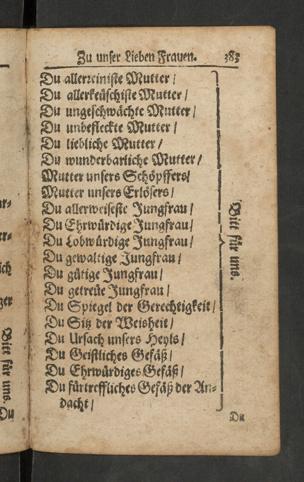 Zu unser Lieben Frauen. 383
Du allerreiniste Mutter /
Du allerkeüschiste Mutter /
Du ungeschwächte Mutter /
Du unbefleckte Mutter /
Du liebliche Mutter /
Du wunderbarliche Mutter /
Mutter unsers Schöpffers /
Mutter unsers Erlösers /
Du allerweiseste Jungfrau /
Du Ehrwürdige Jungfrau /
Du Lobwürdige Jungfrau /
Du gewaltige Jungfrau /
Du gütige Jungfrau /
Du getreüe Jungfrau /
Du Spiegel der Gerechtigkeit /
Du Sitz der Weisheit /
Du Ursach unsers Heyls /
Du Geistliches Gefäß /
Du Ehrwürdiges Gefäß /
Du fürtreffliches Gefäß der An-
dacht /
Bitt für uns.
Du
Bitt für uns.
Du